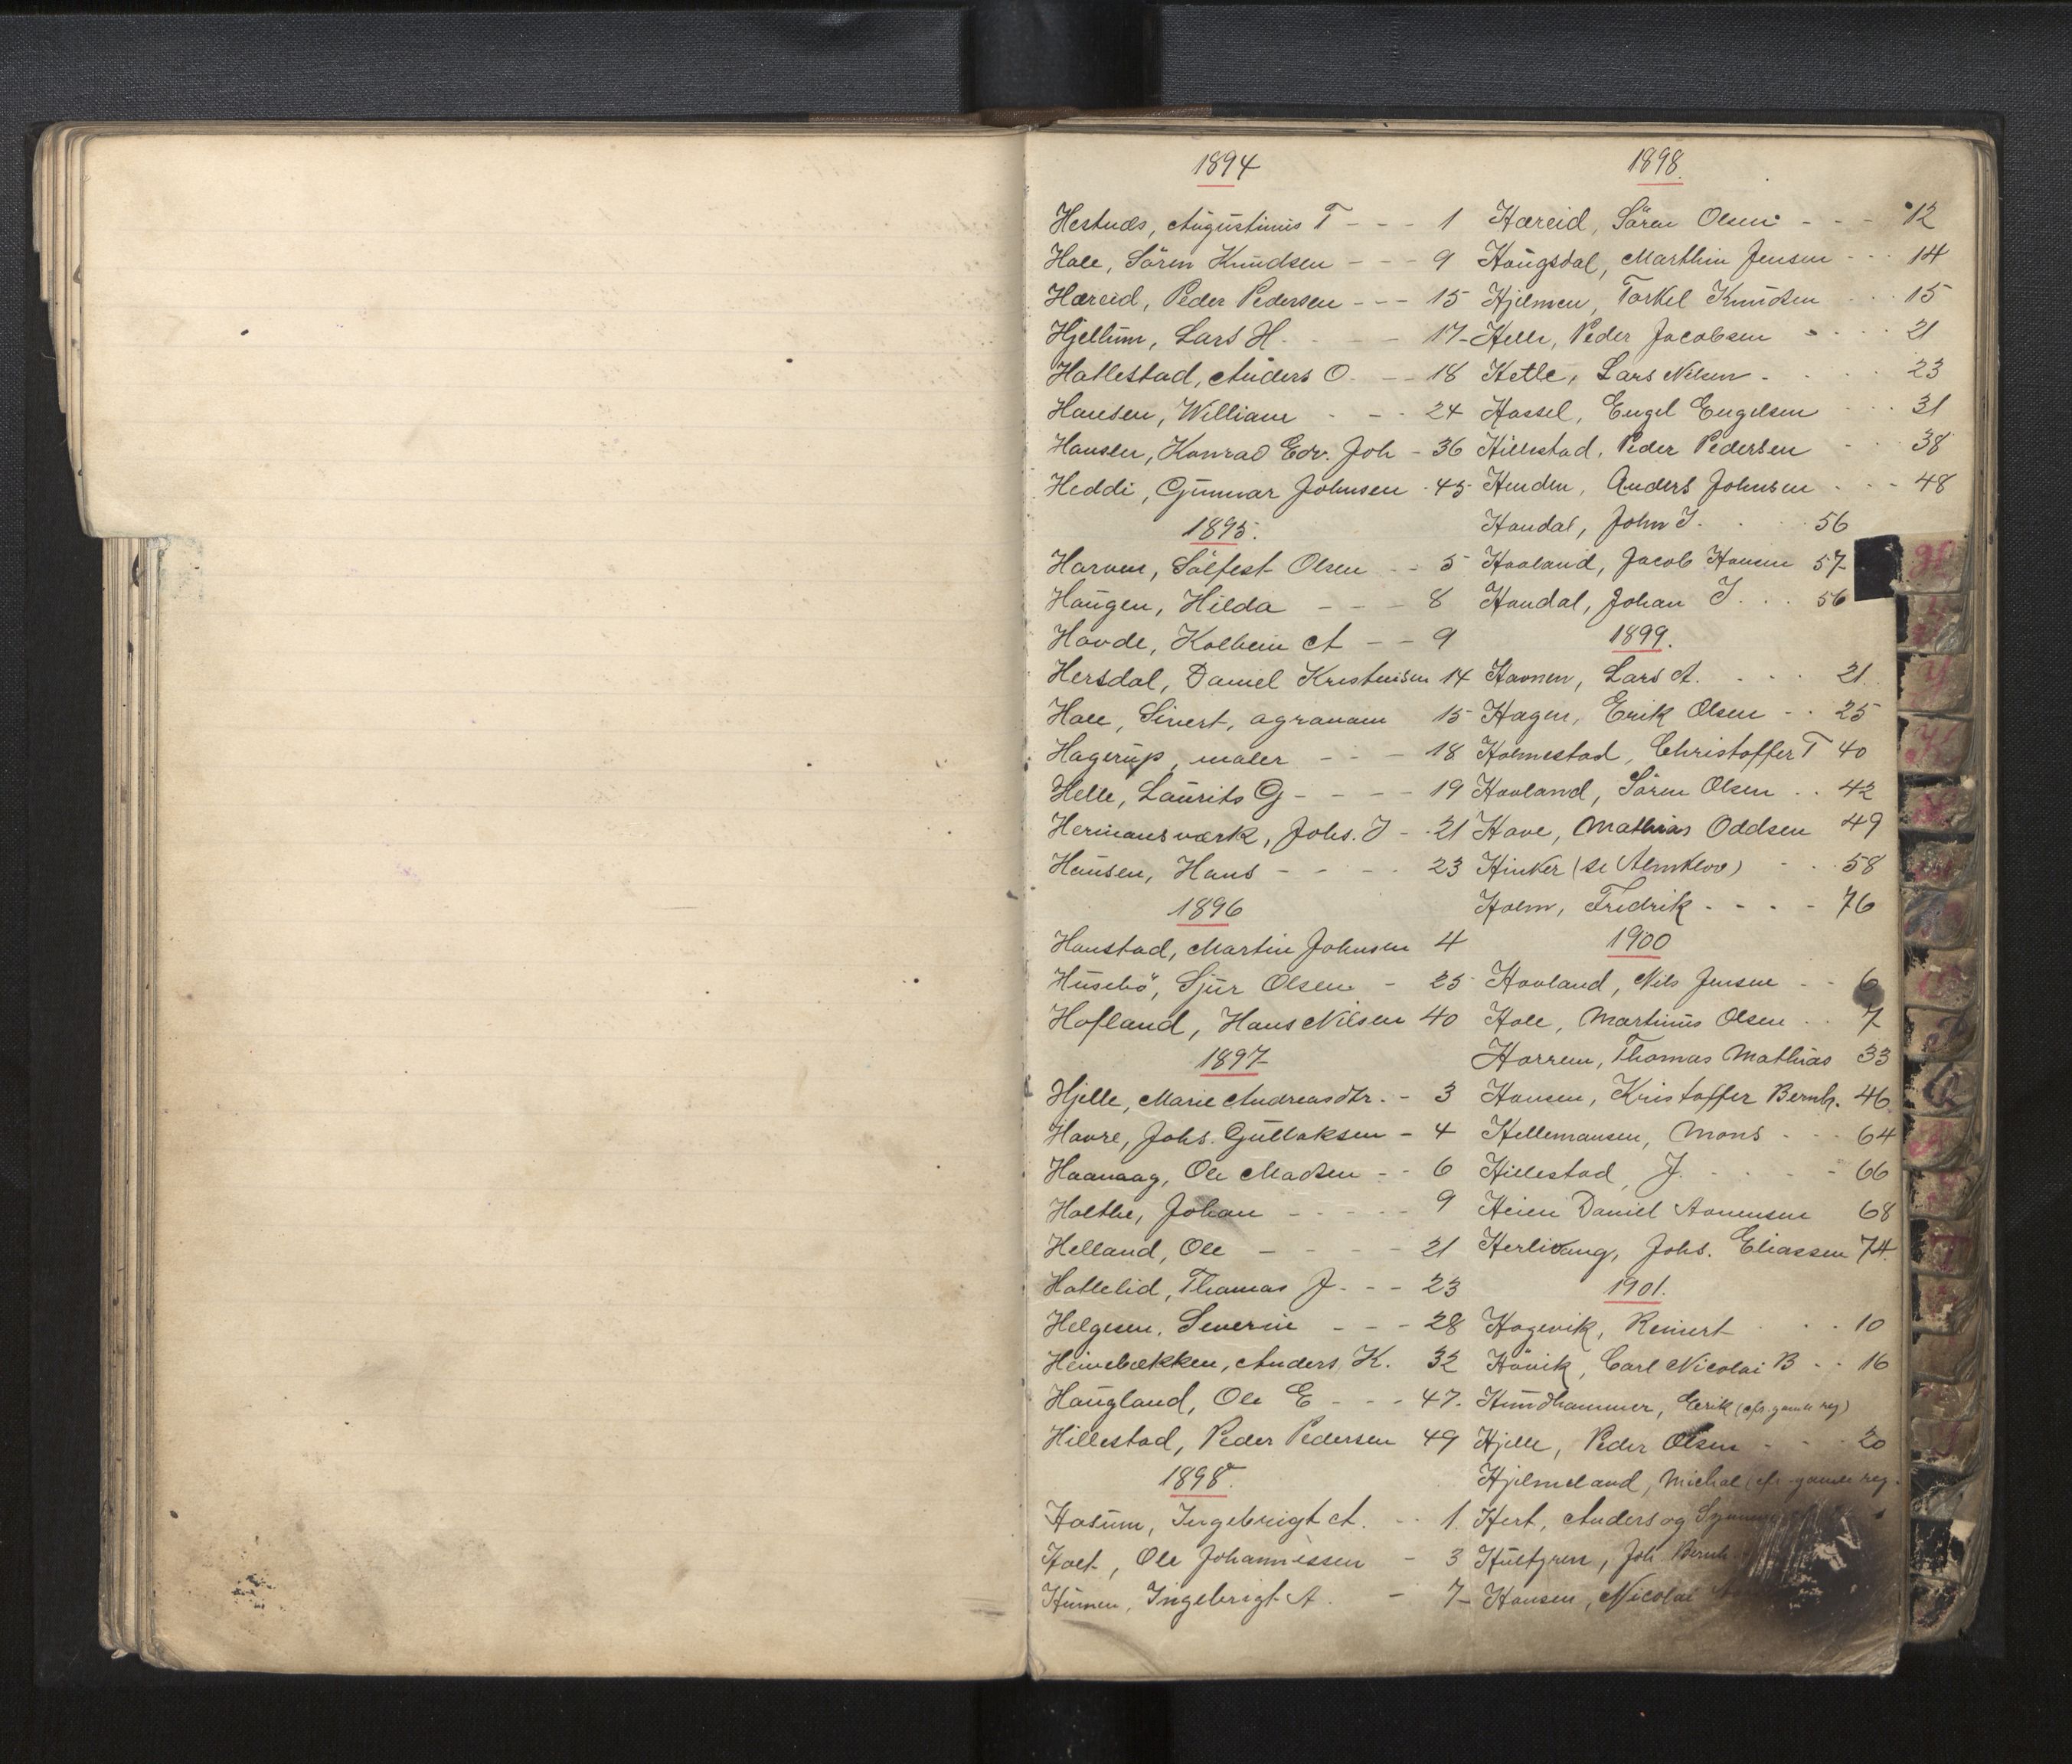 1894
Hestnæs, Augustinus T - - - 1
Hole, Sören Knudsen - - - 9
Hæreid, Peder Pedersen - - - 15
Hjellum, Lars H. - - - 17
Hatlestad, Anders O. - - 18
Hansen, William - - - 24
Hansen, Konrad Edv. Joh - 36
Heddi, Gunnar Johnsen - 45
1895.
Harven, Sölfest Olsen - - 5
Haugen, Hilda - - - 8
Hovde, Kolbein A - - 9
Hersdal, Daniel Kristensen 14
Hole, Sivert, agronom 15
Hagerup, maler - - - 18
Helle, Laurits G - - - - 19
Hermansværk, Johs. J - - 21
Hansen, Hans - - - - 23
1896
Hanstad, Martin Johnsen 4
Husebö, Sjur Olsen - 25
Hofland, Hans Nilsen 40
1897
Hjelle, Marie Andreasdtr. - 3
Havre, Johs. Gullaksen - 4
Ole Madsen - - 6
Holthe, Johan - - - - - 9
Helland, Ole - - - - 21
Hatlelid, Thomas J. - - 23
Helgesen, Severin - - - 28
Heivebækken, Anders K. 32
Haugland, Ole E - - - 47.
Hillestad, Peder Pedersen 49
1898.
Hasum, Ingebrigt A. - - 1.
Holt, Ole Johannessen - 3
Humen, Ingebrigt A. - 7
1898.
Hæreid, Sören Olsen - - - 12
Haugsdal, Marthin Jensen - - - 14
Hjelmen, Torkel Knudsen - - 15
Helle, Peder Jacobsen - - - - 21
Hetle, Lars Nilsen - - - - 23
Hassel, Engel Engelsen - - - 31
Hillestad, Peder Pedersen - - - 38
Henden, Anders Johnsen - - - 48
Haudal, John J. - - - 56
Hovland, Jacob Hansen 57
Haudal, Johan J. . . . 56
1899.
Havnen, Lars A. - - - - 21.
Hagen, Erik Olsen - - 25
Holmestad, Christoffer T 40
Hovland, Sören Olsen . . 42
Hove, Mathias Oddsen 49
Hinker (se Almklov) - - - 58
Holm, Fredrik - - - - 76
1900
Hovland, Nils Jensen - - 6
Hole, Martinus Olsen . . 7
Horrem, Thomas Mathias 33
Hansen, Kristoffer Bernh. 46
Hellemansen, Mons - - - 64
Hillestad, J. - - - - 66
Heien Daniel 68
Herlivang, Johs. Eliassen 74.
1901.
Hagevik, Reinert - - - 10
Hövik, Carl Nicolai B - - 16
Hundhammer, Erik (cfr. gamle reg)
Hjelle, Peder Olsen - - - 20
Hjelmeland, Michal (cfr. gamle reg.
Hert, Anders og
Hultgren, Joh Bernh
Hansen, Nicolai